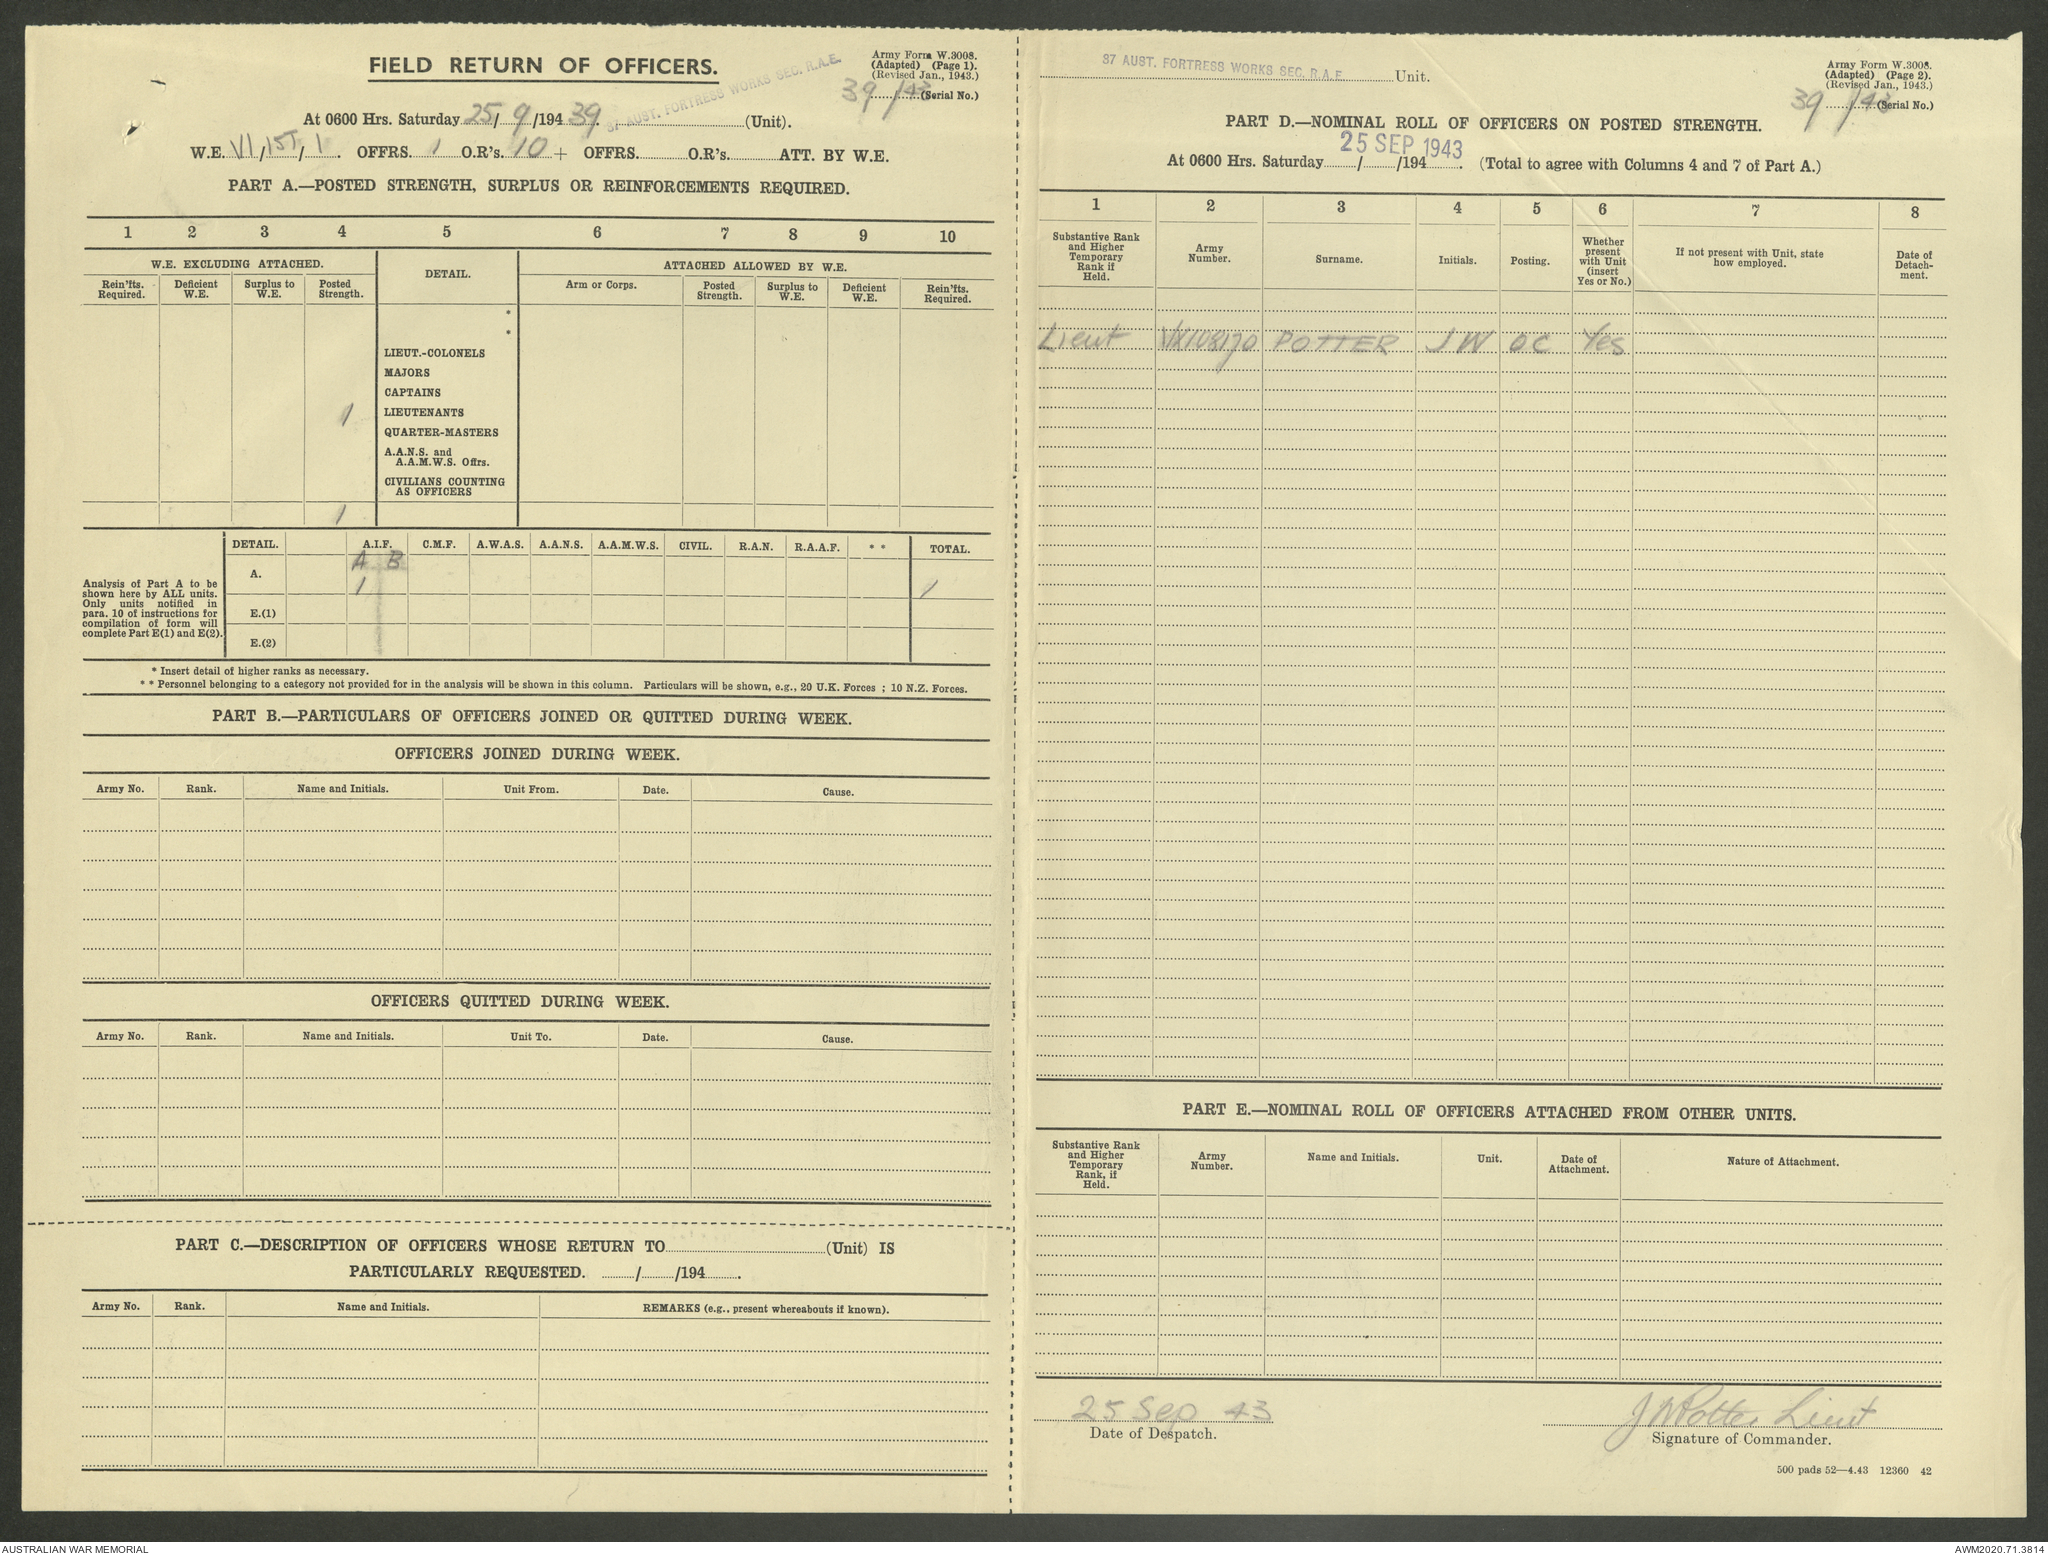 FIELD RETURN OF OFFICERS.
Army Form W.3008.
(Adapted) (Page 1).
(Revised Jan., 1943.)
39/43 (Serial No.)
At 0600 Hrs. Saturday 25/9/194 39. 87 AUST. FORTRESS WORKS SEC. R.A.E. (Unit).
W.E. VI/15J/1. OFFRS. 1 O.R's. 10 + OFFRS. O.R's. ATT. BY W.E.
PART A.—POSTED STRENGTH, SURPLUS OR REINFORCEMENTS REQUIRED.
1 2 3 4 5 6 7 8 9 10
W.E. EXCLUDING ATTACHED. DETAIL. ATTACHED ALLOWED BY W.E.
Rein'fts. Required. Deficient W.E. Surplus to W.E. Posted Strength. Arm or Corps. Posted Strength. Surplus to W.E. Deficient W.E. Rein'fts. Required.
*
*
LIEUT.-COLONELS
MAJORS
CAPTAINS
1 LIEUTENANTS
QUARTER-MASTERS
A.A.N.S. and
A.A.M.W.S. Offrs.
CIVILIANS COUNTING
AS OFFICERS
1
DETAIL. A.I.F. C.M.F. A.W.A.S. A.A.N.S. A.A.M.W.S. CIVIL. R.A.N. R.A.A.F. * * TOTAL.
A B
A. 1 1
E.(1)
E.(2)
Analysis of Part A to be
shown here by ALL units.
Only units notified in
para. 10 of instructions for
compilation of form will
complete Part E(1) and E(2).
* Insert detail of higher ranks as necessary.
* * Personnel belonging to a category not provided for in the analysis will be shown in this column. Particulars will be shown, e.g., 20 U.K. Forces ; 10 N.Z. Forces.
PART B.—PARTICULARS OF OFFICERS JOINED OR QUITTED DURING WEEK.
OFFICERS JOINED DURING WEEK.
Army No. Rank. Name and Initials. Unit From. Date. Cause.
OFFICERS QUITTED DURING WEEK.
Army No. Rank. Name and Initials. Unit To. Date. Cause.
PART C.—DESCRIPTION OF OFFICERS WHOSE RETURN TO (Unit) IS
PARTICULARLY REQUESTED. / /194 .
Army No. Rank. Name and Initials. REMARKS (e.g., present whereabouts if known).
87 AUST. FORTRESS WORKS SEC. R.A.E. Unit.
Army Form W.3008.
(Adapted) (Page 2).
(Revised Jan., 1943.)
39/43 (Serial No.)
PART D.—NOMINAL ROLL OF OFFICERS ON POSTED STRENGTH.
25 SEP 1943
At 0600 Hrs. Saturday / /194 . (Total to agree with Columns 4 and 7 of Part A.)
1 2 3 4 5 6 7 8
Substantive Rank and Higher Temporary Rank if Held. Army Number. Surname. Initials. Posting. Whether present with Unit (insert Yes or No.) If not present with Unit, state how employed. Date of Detach- ment.
Lieut VX108170 POTTER J W OC Yes
PART E.—NOMINAL ROLL OF OFFICERS ATTACHED FROM OTHER UNITS.
Substantive Rank and Higher Temporary Rank, if Held. Army Number. Name and Initials. Unit. Date of Attachment. Nature of Attachment.
25 Sep 43
Date of Despatch.
J W Potter Lieut
Signature of Commander.
500 pads 52—4.43 12360 42
AUSTRALIAN WAR MEMORIAL
AWM2020.71.3814